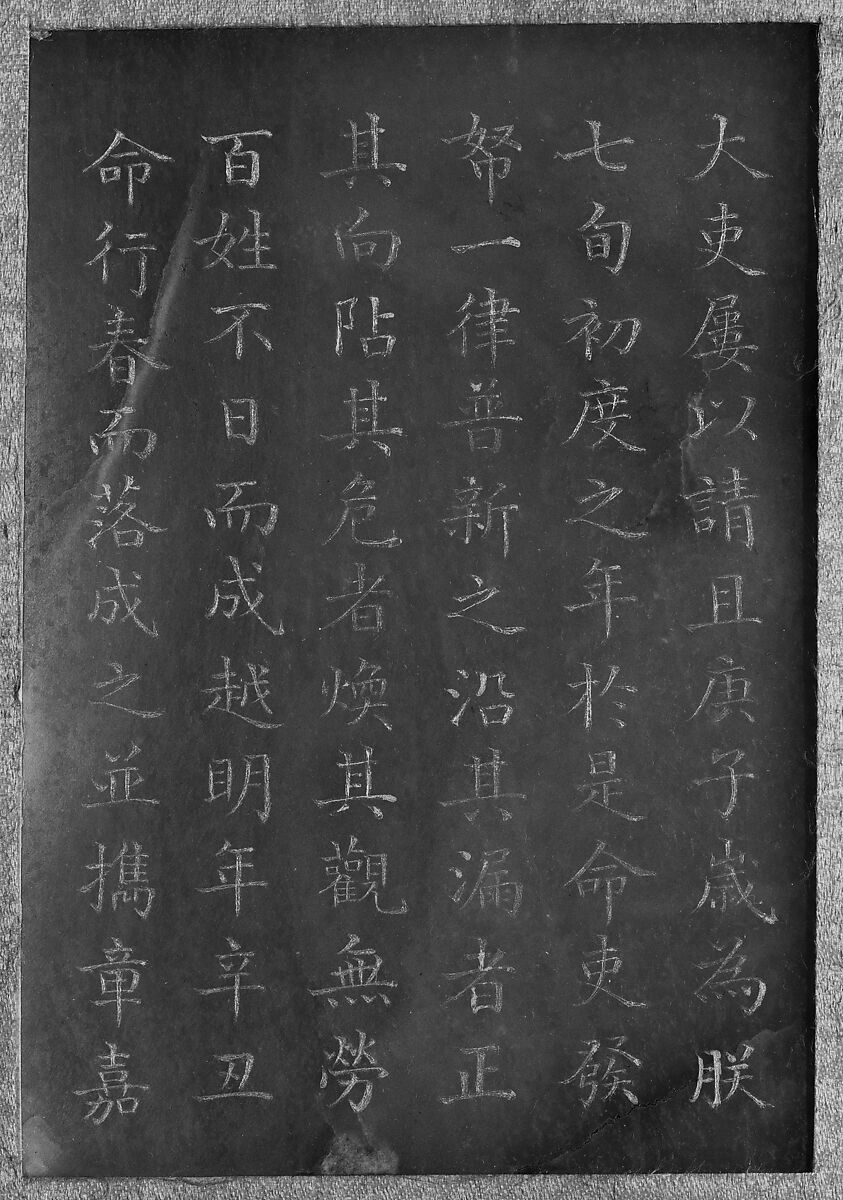 大吏屢以請且庚子歲為朕
七旬初度之年於是命吏發
帑一律普新之沿其漏者正
其向阽其危者煥其觀無勞
百姓不日而成越明年辛丑
命行春而落成之並攜章嘉